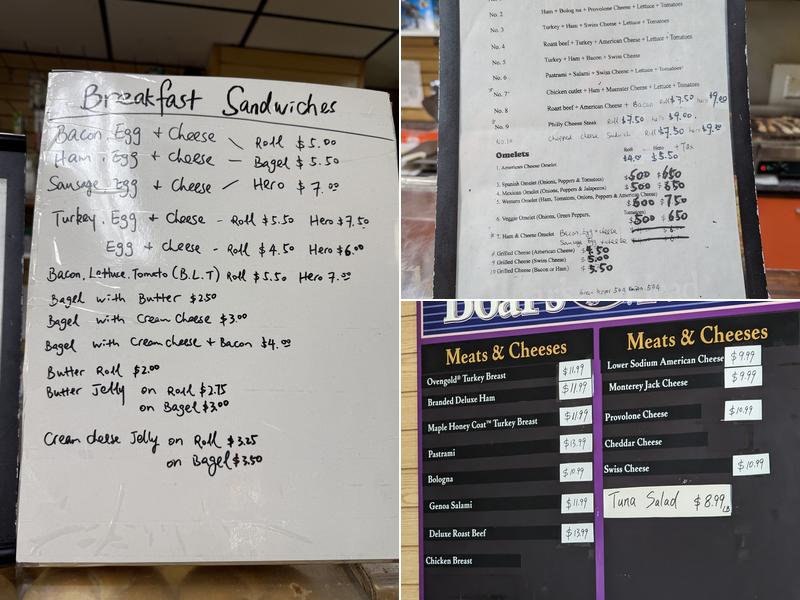 Breakfast Sandwiches
Bacon.Egg + cheese \ Roll $5.00
Ham.Egg + Cheese — Bagel $5.50
Sausage Egg + Cheese / Hero $7.00
Turkey.Egg + Cheese - Roll $5.50 Hero $7.50
Egg + cheese - Roll $4.50 Hero $6.00
Bacon.Lettuce.Tomato (B.L.T) Roll $5.50 Hero 7.00
Bagel with Butter $2.50
Bagel with Cream Cheese $3.00
Bagel with Cream cheese + Bacon $4.00
Butter Roll $2.00
Butter Jelly on Roll $2.75
on Bagel $3.00
Cream cheese Jelly on Roll $3.25
on Bagel $3.50
No. 2 Ham + Bolog na + Provolone Cheese + Lettuce + Tomatoes
No. 3 Turkey + Ham + Swiss Cheese + Lettuce + Tomatoes
No. 4 Roast beef + Turkey + American Cheese + Lettuce + Tomatoes
No. 5 Turkey + Ham + Bacon + Swiss Cheese
No. 6 Pastrami + Salami + Swiss Cheese + Lettuce + Tomatoes
No. 7 Chicken cutlet + Ham + Muenster Cheese + Lettuce + Tomatoes
No. 8 Roast beef + American Cheese + Bacon Roll $7.50 hero $9.00
No. 9 Philly Cheese Steak Roll $7.50 hero $9.00
No.10 chopped cheese Sandwich Roll $7.50 hero $9.00
Omelets Roll Hero + Tax
1. American Cheese Omelet $4.00 $5.50
3. Spanish Omelet (Onions, Peppers & Tomatoes) $500 $650
4. Mexican Omelet (Onions, Peppers & Jalaperos) $500 $650
5. Western Omelet (Ham, Tomatoes, Onions, Peppers & American Cheese) $600 $750
6. Veggie Omelet (Onions, Green Peppers, Tomatoes) $500 $650
7. Ham & Cheese Omelet Bacon.Egg + cheese
Sausage Egg + cheese
8 Grilled Cheese (American Cheese) $4.50
9 Grilled Cheese (Swiss Cheese) $5.00
10 Grilled Cheese (Bacon or Ham) $5.50
Boar's
Meats & Cheeses
Ovengold® Turkey Breast $11.99
Branded Deluxe Ham $11.99
Maple Honey Coat™ Turkey Breast $11.99
Pastrami $13.99
Bologna $10.99
Genoa Salami $11.99
Deluxe Roast Beef $13.99
Chicken Breast
Meats & Cheeses
Lower Sodium American Cheese $9.99
Monterey Jack Cheese $9.99
Provolone Cheese $10.99
Cheddar Cheese
Swiss Cheese $10.99
Tuna Salad $8.99 LB